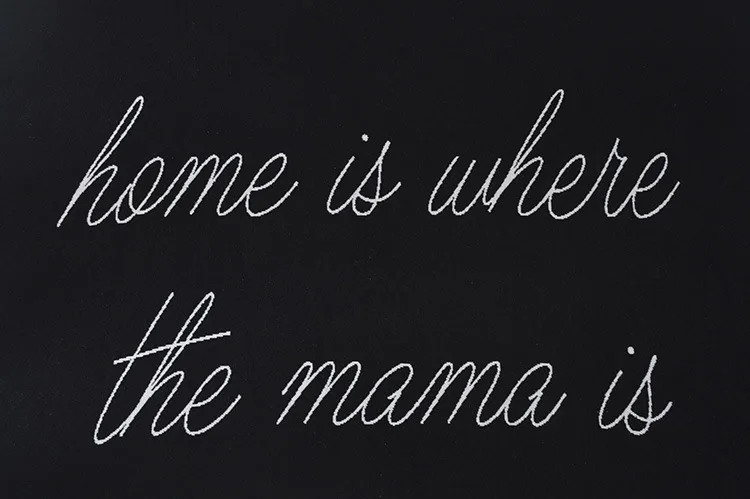 home is where
the mama is